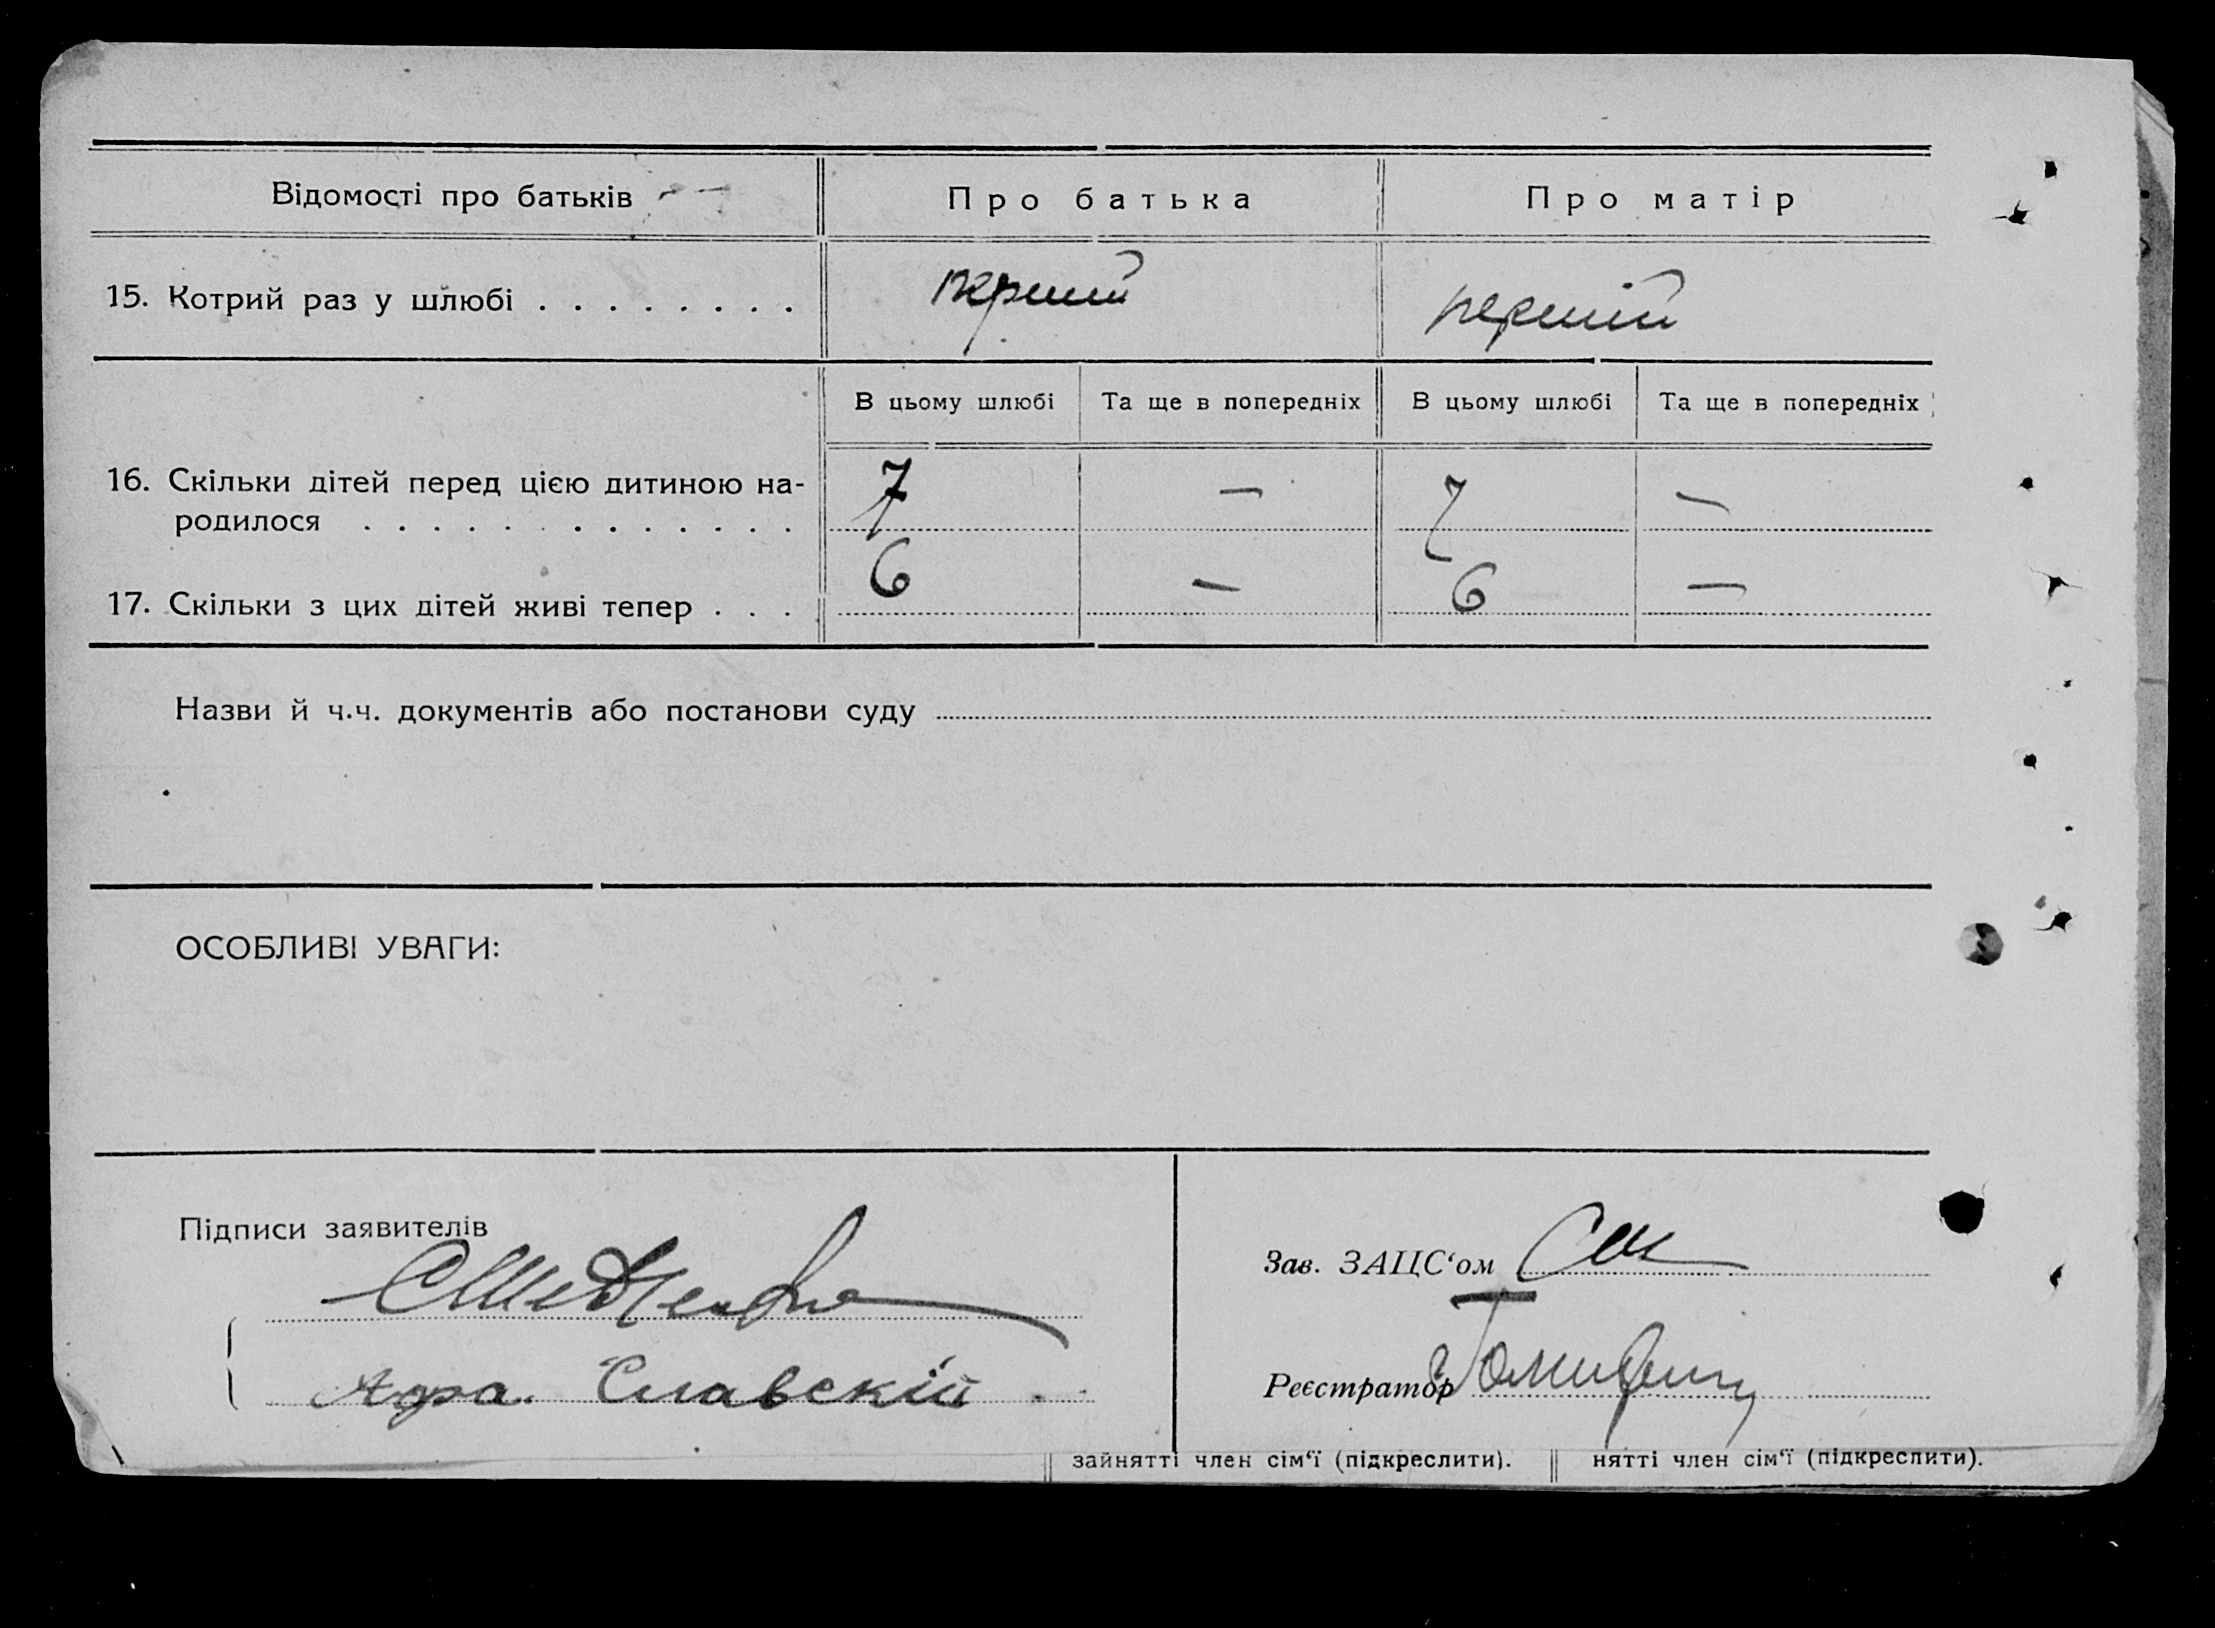 Відомості про батьків
Про батька
Про матір
15. Котрий раз у шлюбі . . . . . . . .
перший
першій
В цьому шлюбі
Та ще в попередніх
В цьому шлюбі
Та ще в попередніх
16. Скільки дітей перед цією дитиною на-
родилося . . . . . . . . . . . . .
7
—
7
—
17. Скільки з цих дітей живі тепер . . .
6
—
6
—
Назви й ч.ч. документів або постанови суду
ОСОБЛИВІ УВАГИ:
Підписи заявителів
Славскій
Зав. ЗАЦС‘ом
Реєстратор
зайнятті член сім‘ї (підкреслити).
нятті член сім‘ї (підкреслити).